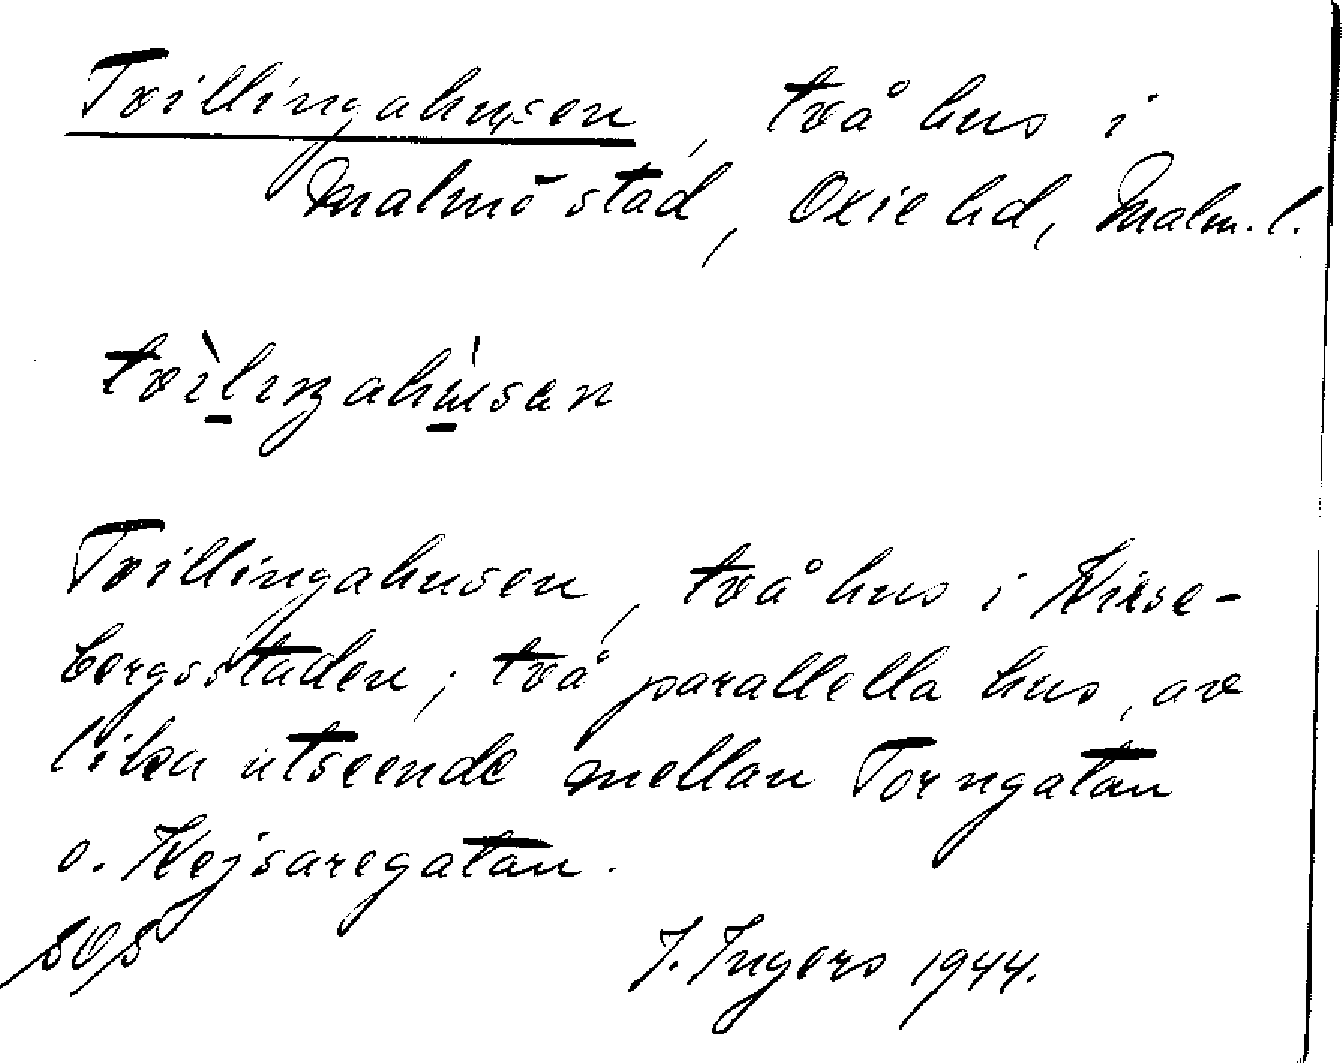 Tvillingahusen, två hus i
Malmö stad, Oxie hd, Malm. l.
tvìlıŋahu̇sən
Tvillingahusen, två hus i Kirse-
bergsstaden; två parallella hus, av
lika utseende mellan Torngatan
o. Kejsaregatan.
SOS J. Ingers 1944.